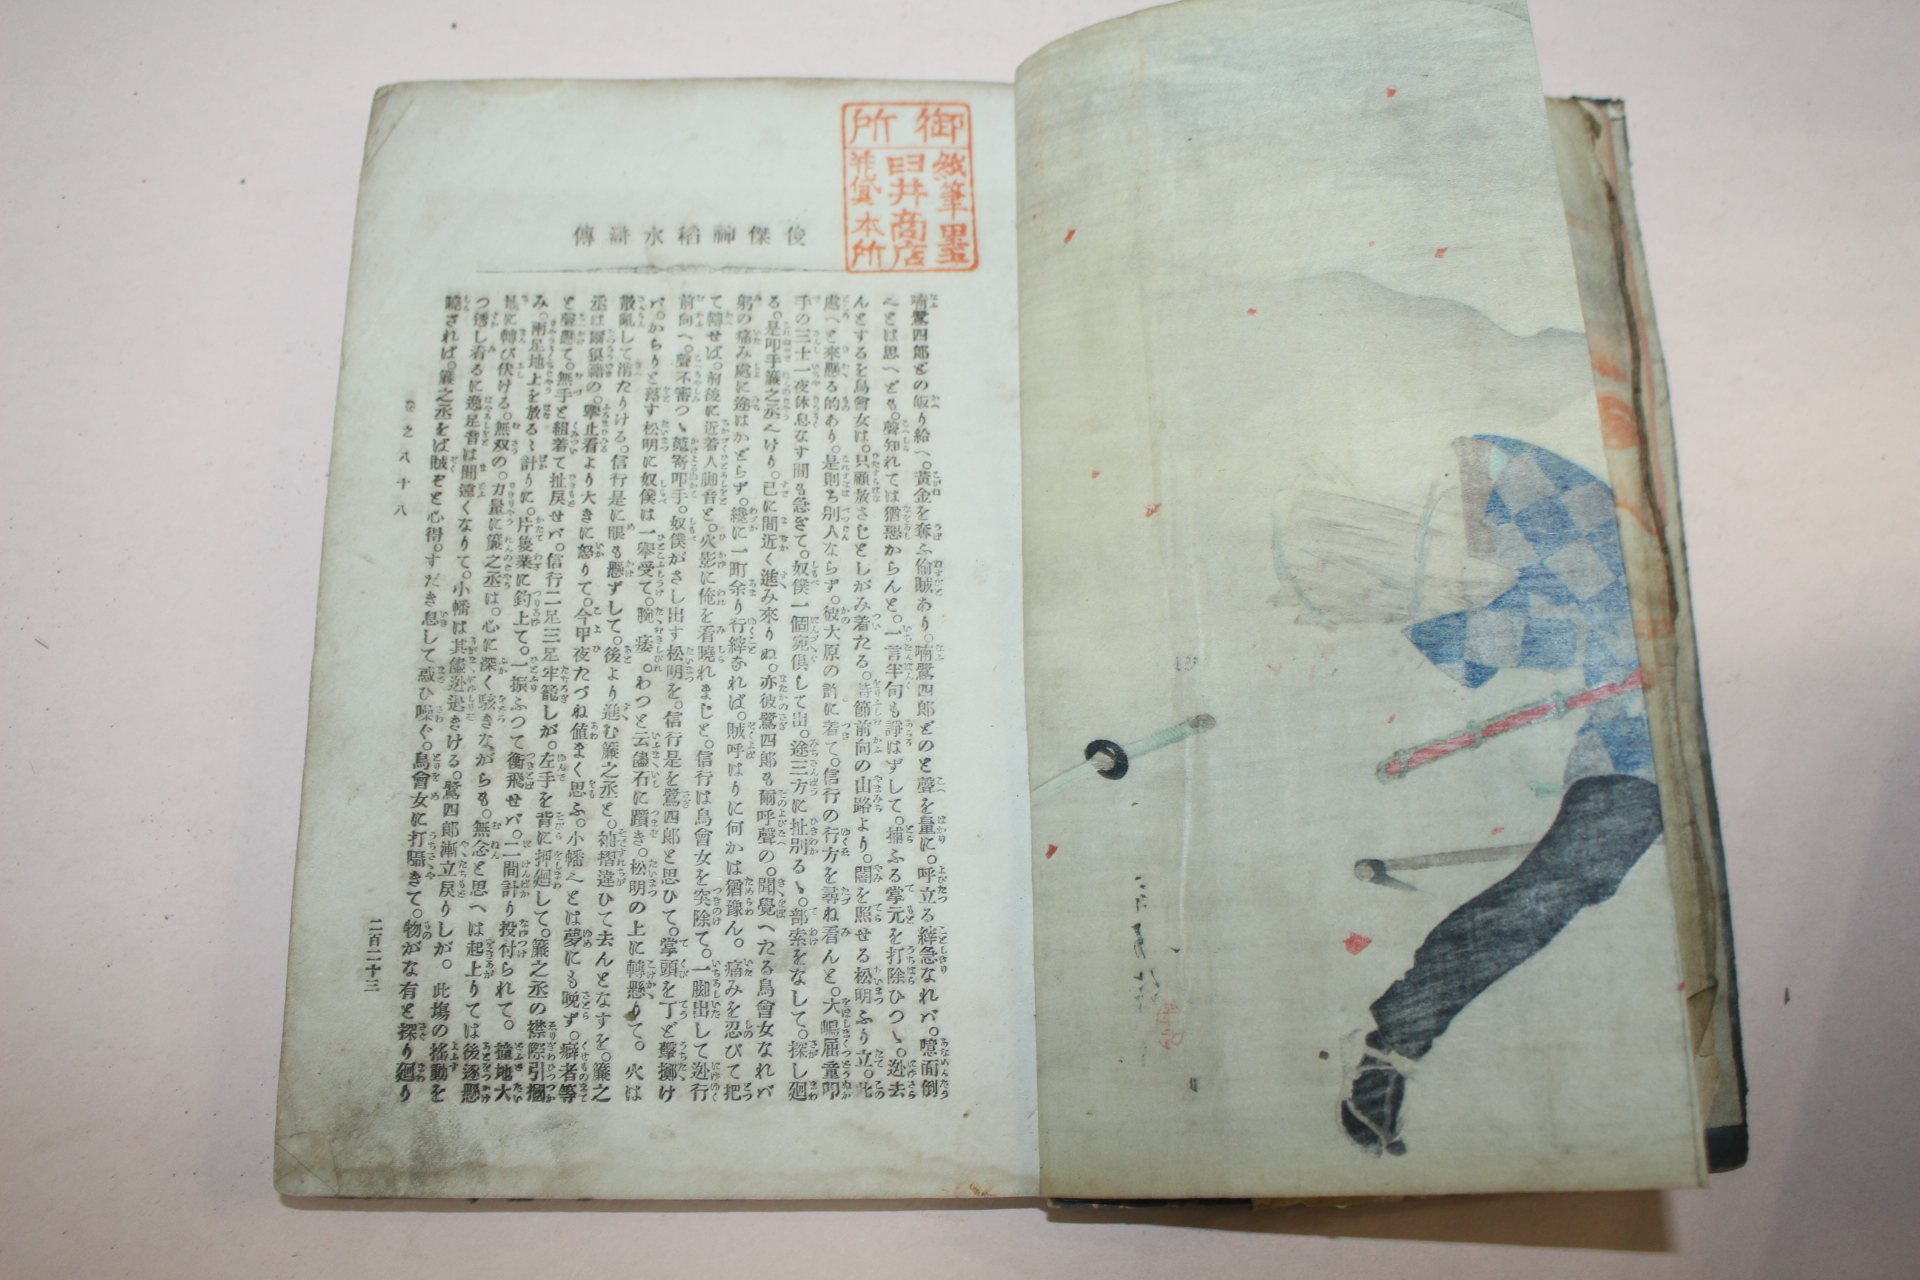 御所
紙筆墨
臼井商店
並貸本所
俊傑神稲水滸傳
喃鷲四郎どの皈り給へ。黄金を奪ふ偸賊あり。喃鷲四郎どのと聲を量に。呼立る縡急なれバ。噫面倒
んとするを鳥會女は。只顧放さじとしがみ着たる。時節前向の山路より。闇を照せる松明ふり立。此
處へと來懸る的あり。是則ち別人ならず。彼大原の許に着て。信行の行方を尋ね看んと。大嶋屈童叩
手の三士一夜休息なす間も急ぎて。奴僕一個宛倶して出。途三方に扯別るゝ。部索をなして。探し廻
る。是叩手簾之丞なりけり。己に間近く進み來りぬ。亦彼鷲四郎も爾呼聲の。聞覺へたる鳥會女なれバ
躬の痛み處に途はかどらず。纔に一町余り行縡なれば。賊呼はりに何かは猶豫ん。痛みを忍びて把
て轉せば。前後に近着人脚音と。火影に俺を看曉れまじと。信行は鳥會女を突除て。一脚出して迯行
前向へ。聲不審つゝ蒐寄叩手。奴僕がさし出す松明を。信行是を鷲四郎と思ひて。掌頭を丁ど擊擲け
バ。からりと落す松明に奴僕は一擧受て。腕痿。わつと云儘石に躓き。松明の上に轉懸りて。火は
散亂して消たりける。信行是に眼も懸ずして。後より進む簾之丞と。袖摺違ひて去んとなすを。簾之
丞は爾狼藉の。擧止看より大きに怒りて。今甲夜たづね値まく思ふ。小幡とは夢にも曉ず。癖者等
と聲懸て。無手と組着て扯戻せバ。信行二足三足牢籠しが。左手を背に押廻して。簾之丞の襟際引摑
み。兩足地上を放るゝ計りに。片隻業に釣上て。一振ふつて衡飛せバ。二間計り投付られて。撞地大
地に轉び伏ける。無双の。力量に簾之丞は。心に深く駭きながらも。無念と思へは起上りては後逐懸
つ透し看るに逸足音は間遠くなりて。小幡は其儘迯迯きける。鷲四郎漸立戻りしが。此塲の搖動を
曉されば。簾之丞をば賊ぞと心得。すだき息して惑ひ噪ぐ。鳥會女に打囁きて。物がな有と探り廻り
巻之八十八
二百二十三